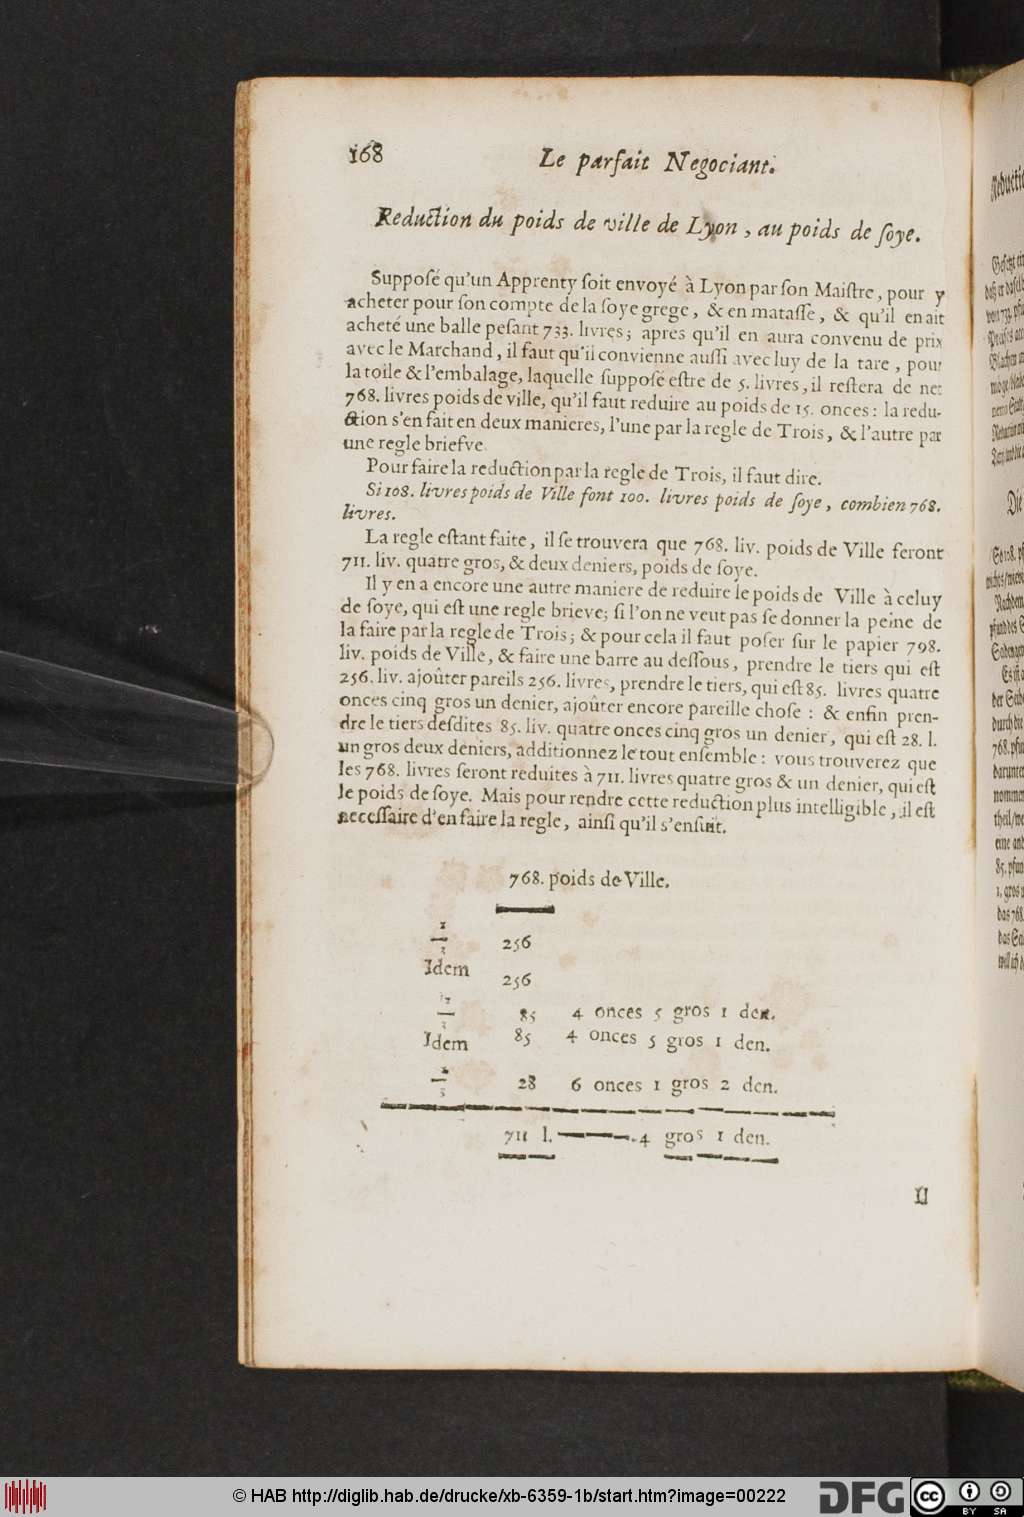 168
Le parfait Negociant.
Reduction du poids de ville de Lyon, au poids de ſoye.
Suppoſé qu'un Apprenty ſoit envoyé à Lyon par ſon Maiſtre, pour y
acheter pour ſon compte de la ſoye grege, & en mataſſe, & qu'il en ait
acheté une balle peſant 733. livres; apres qu'il en aura convenu de prix
avec le Marchand, il faut qu'il convienne auſſi avec luy de la tare, pour
la toile & l'embalage, laquelle ſuppoſé eſtre de 5. livres, il reſtera de net
768. livres poids de ville, qu'il faut reduire au poids de 15. onces: la redu-
ction s'en fait en deux manieres, l'une par la regle de Trois, & l'autre par
une regle briefve.
Pour faire la reduction par la regle de Trois, il faut dire.
Si 108. livres poids de Ville font 100. livres poids de ſoye, combien 768.
livres.
La regle eſtant faite, il ſe trouvera que 768. liv. poids de Ville feront
711. liv. quatre gros, & deux deniers, poids de ſoye.
Il y en a encore une autre maniere de reduire le poids de Ville à celuy
de ſoye, qui eſt une regle brieve; ſi l'on ne veut pas ſe donner la peine de
la faire par la regle de Trois; & pour cela il faut poſer ſur le papier 798.
liv. poids de Ville, & faire une barre au deſſous, prendre le tiers qui eſt
256. liv. ajoûter pareils 256. livres, prendre le tiers, qui eſt 85. livres quatre
onces cinq gros un denier, ajoûter encore pareille choſe: & enfin pren-
dre le tiers deſdites 85. liv. quatre onces cinq gros un denier, qui eſt 28. l.
un gros deux deniers, additionnez le tout enſemble: vous trouverez que
les 768. livres ſeront reduites à 711. livres quatre gros & un denier, qui eſt
le poids de ſoye. Mais pour rendre cette reduction plus intelligible, il eſt
neceſſaire d'en faire la regle, ainſi qu'il s'enſuit.
768. poids de Ville.
1/3 256
Idem 256
1/3 85 4 onces 5 gros 1 den.
Idem 85 4 onces 5 gros 1 den.
28 6 onces 1 gros 2 den.
711 l. 4 gros 1 den.
Il
© HAB http://diglib.hab.de/drucke/xb-6359-1b/start.htm?image=00222
DFG
cc
BY SA